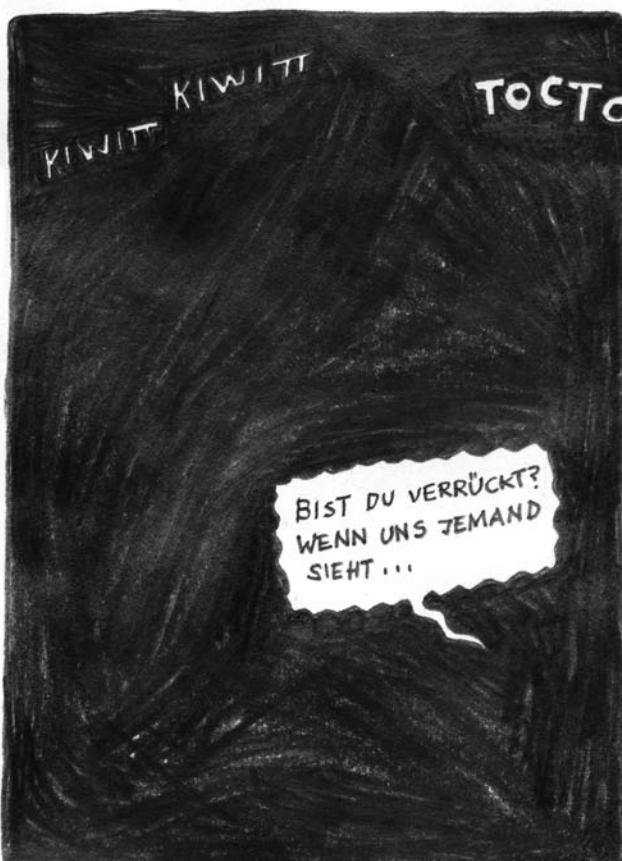 KIWITT
KIWITT
TOCTO
BIST DU VERRÜCKT?
WENN UNS JEMAND
SIEHT...